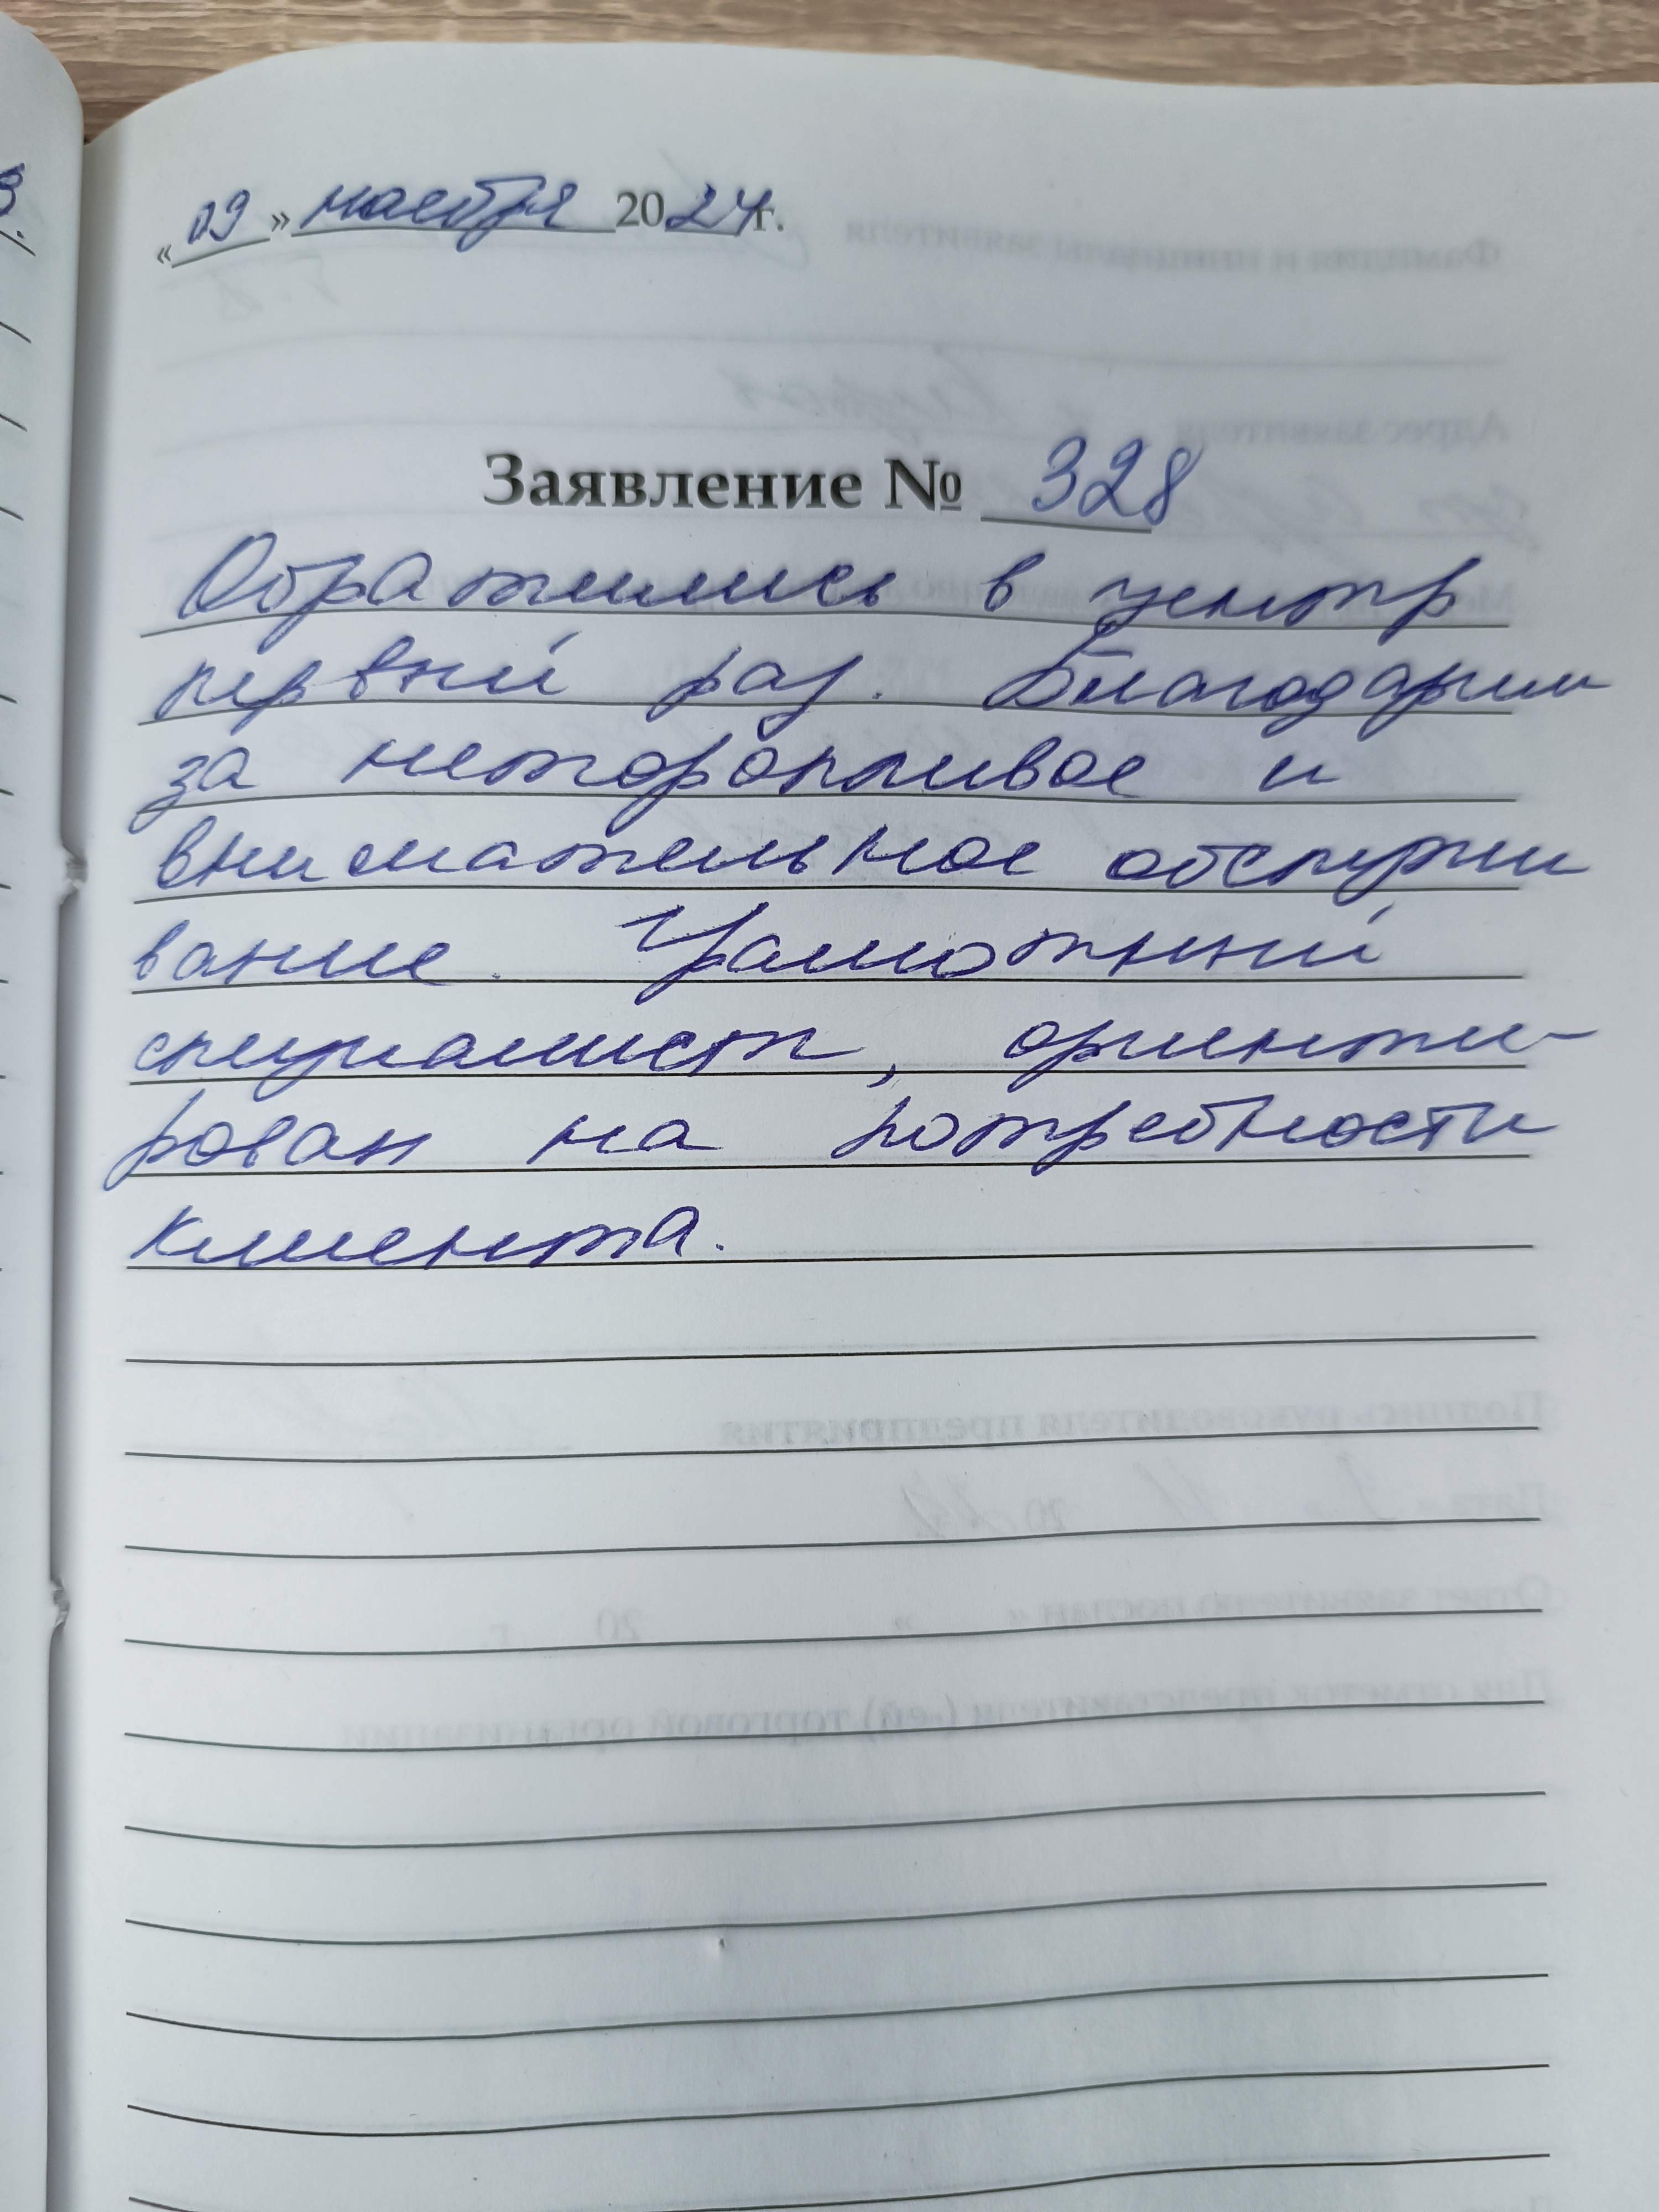 «09» ноября 2024г.
Заявление № 328
Обратились в центр
первый раз. Благодарим
за неторопливое и
внимательное обслужи
вание. Грамотный
специалист, ориенти-
рован на потребности
клиента.